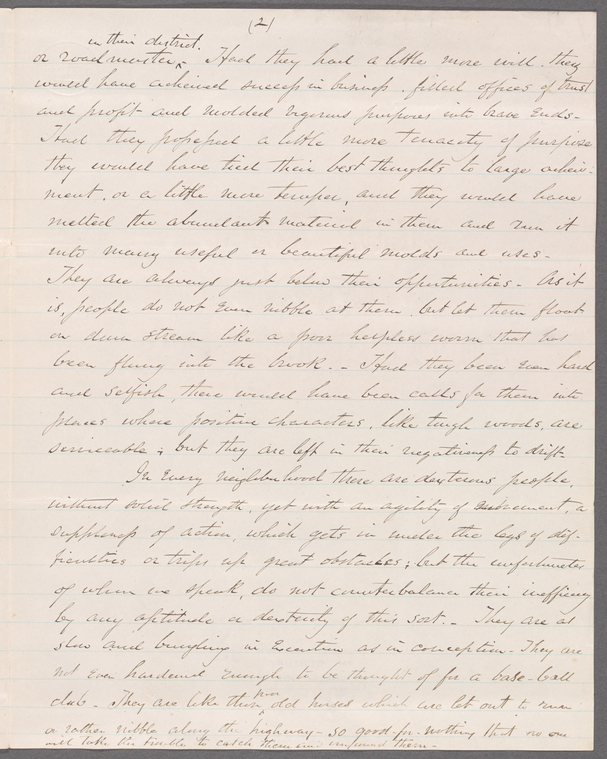 (2)
in their district.
or roadmaster - Had they had a little more will, they
would have achieved success in business, filled offices of trust
and profit and molded vigorous purposes into brave ends -
Had they possessed a little more tenacity of purpose
they would have tied their best thoughts to large achiev-
ment, or a little more temper, and they would have
melted the abundant material in them and run it
into many useful or beautiful molds and uses -
They are always just below their opportunities - As it
is, people do not even nibble at them, but let them float
on down stream like a poor helpless worm that has
been flung into the brook. - Had they been even hard
and selfish, there would have been calls for them into
places where positive characters, like tough woods, are
serviceable; but they are left in their negativeness to drift -
In every neighborhood there are dexterous people,
without solid strength, yet with an agility of movement, a
suppleness of action, which gets in under the legs of dif-
ficulties or trips up great obstacles; but the unfortunates
of whom we speak, do not counterbalance their inefficiency
by any aptitude or dexterity of this sort. - They are as
slow and bungling in execution as in conception - They are
not even hardened enough to be thought of for a base-ball
club - They are like those poor old horses which are let out to roam
or rather nibble along the highway - so good-for-nothing that no one
will take the trouble to catch them and impound them -